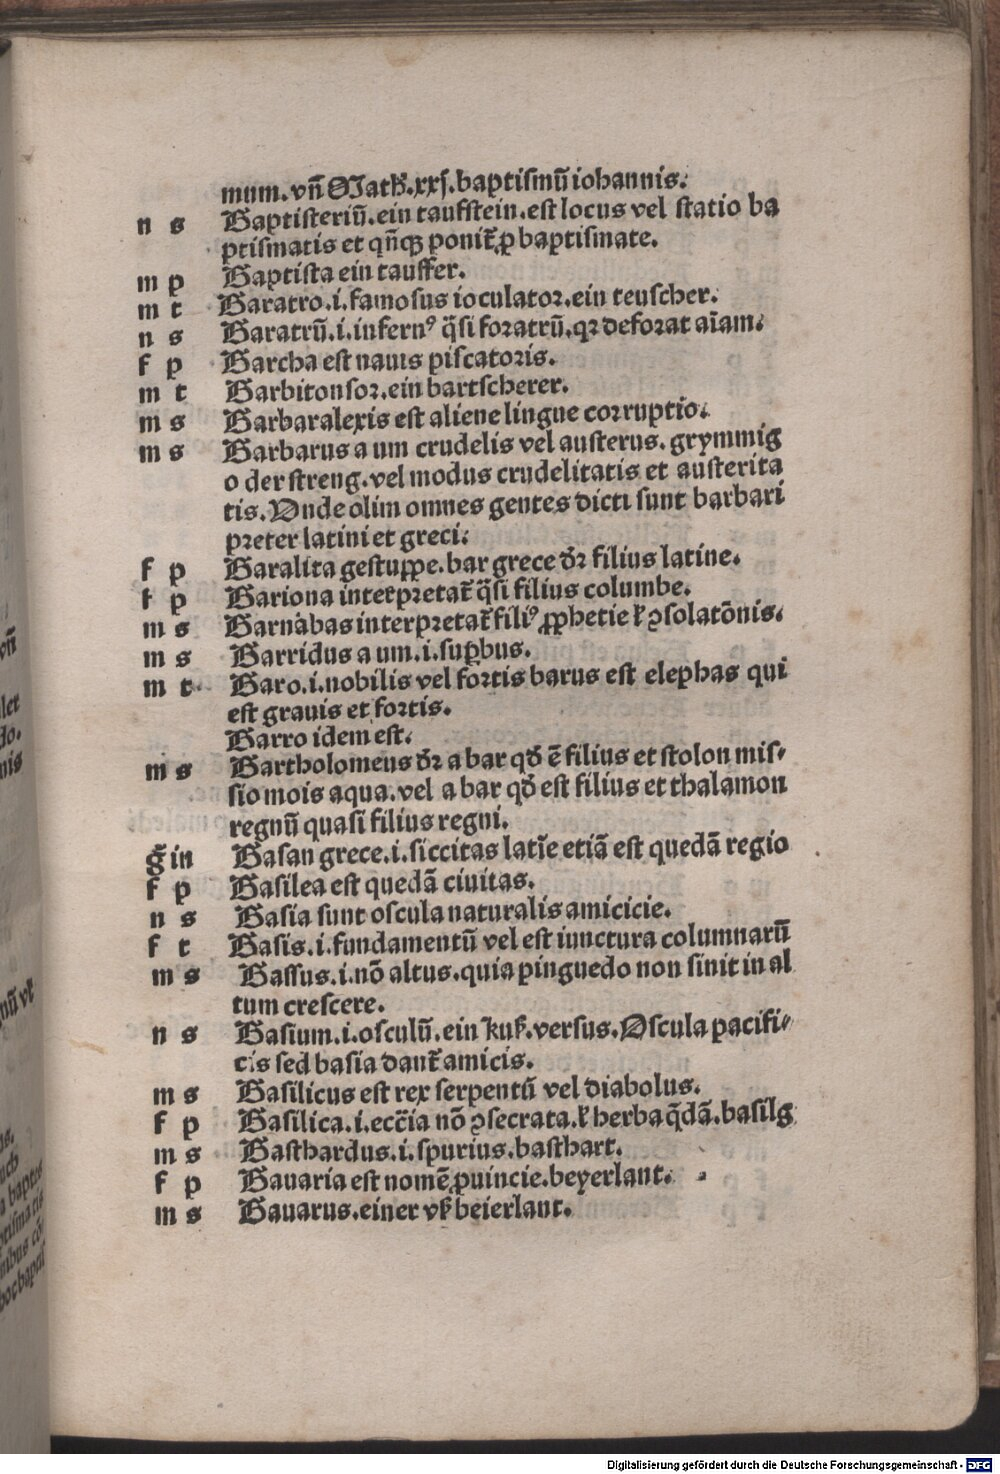 mum.vñ Math̄.xxj.baptismū iohannis.
n s Baptisteriū.ein taufstein.est locus vel statio ba
ptismatis et qñqꝫ ponit᷑ ꝓ baptismate.
m p Baptista ein tauffer.
m t Baratro.i.famosus ioculatoꝛ.ein teuscher.
n s Baratrū.i.infernꝰ q̄si foꝛatrū.qꝛ defoꝛat aīam.
f p Barcha est nauis piscatoꝛis.
m t Barbitonsoꝛ.ein bartscherer.
m s Barbaralexis est aliene lingue coꝛruptio.
m s Barbarus a um crudelis vel austerus. grymmig
o der streng.vel modus crudelitatis et austerita
tis.Vnde olim omnes gentes dicti sunt barbari
pꝛeter latini et greci.
f p Baralita gestuppe.bar grece dꝛ̄ filius latine.
f p Bariona interpꝛetat᷑ q̄si filius columbe.
m s Barnabas interpꝛetat᷑ filiꝰ ꝓphetie ł ꝯsolatōnis.
m s Barridus a um.i.suꝑbus.
m t Baro.i.nobilis vel foꝛtis barus est elephas qui
est grauis et foꝛtis.
Barro idem est.
m s Bartholomeus dꝛ̄ a bar qđ ē filius et stolon mis-
sio mois aqua.vel a bar qđ est filius et thalamon
regnū quasi filius regni.
ḡ in Basan grece.i.siccitas latīe etiā est quedā regio
f p Basilea est quedā ciuitas.
n s Basia sunt oscula naturalis amicicie.
f t Basis.i.fundamentū vel est iunctura columnarū
m s Bassus.i.nō altus.quia pinguedo non sinit in al
tum crescere.
n s Basium.i.osculū.ein kuß.versus.Oscula pacifi-
cis sed basia dant᷑ amicis.
m s Basilicus est rex serpentū vel diabolus.
f p Basilica.i.eccīa nō ꝯsecrata.ł herba q̄dā.basilg
m s Basthardus.i.spurius.basthart.
f p Bauaria est nomē ꝓuincie.beyerlant.
m s Bauarus.einer vß beierlant.
vñ
let
do.
nis
uch
Digitalisierung gefördert durch die Deutsche Forschungsgemeinschaft - DFG